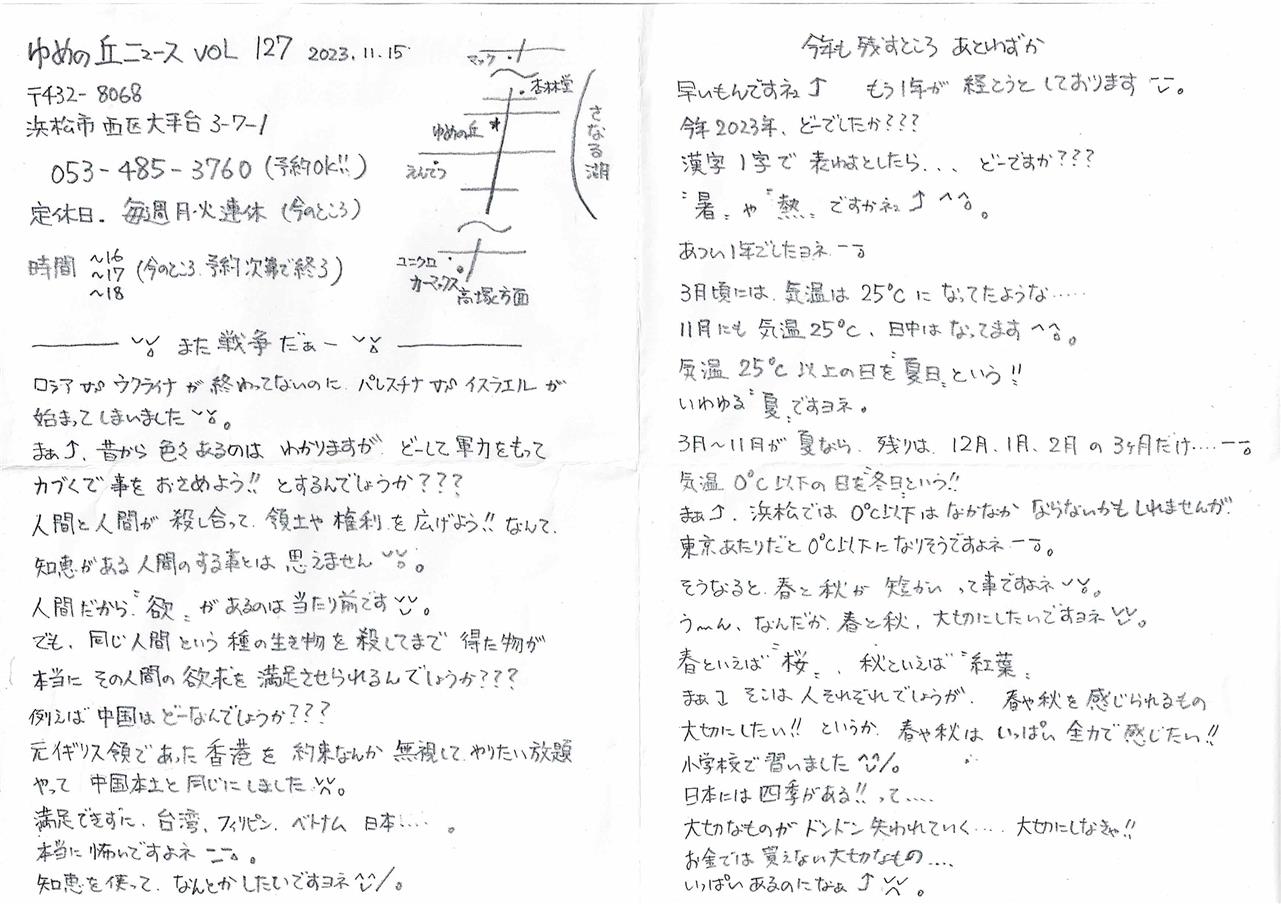 ゆめの丘ニュース VOL 127 2023.11.15
〒432-8068
浜松市西区大平台3-7-1
053-485-3760(予約OK!!)
定休日. 毎週月・火連休(今のところ)
時間 ~16 ~17 ~18 (今のところ.予約次第で終了)
マック
杏林堂
ゆめの丘
さなる湖
えんてつ
ユニクロ
カーマックス
高塚方面
また戦争だぁー
ロシア ウクライナが終わってないのに.パレスチナ イスラエルが
始まってしまいました
まぁ↑、昔から色々あるのはわかりますが.どーして軍力をもって
力づくで事をおさめよう!!とするんでしょうか???
人間と人間が殺し合って.領土や権利を広げよう!!なんて.
知恵がある人間のする事とは思えません
人間だから〝欲〟があるのは当たり前です
でも、同じ人間という種の生き物を殺してまで得た物が
本当にその人間の欲求を満足させられるんでしょうか???
例えば中国はどーなんでしょうか???
元イギリス領であった香港を約束なんか無視して.やりたい放題
やって中国本土と同じにしました
満足できずに、台湾、フィリピン、ベトナム 日本....。
本当に怖いですよネ
知恵を使って、なんとかしたいですヨネ
今年も残すところあとわずか
早いもんですネ↑ もう1年が経とうとしております
今年2023年、どーでしたか???
漢字1字で表わすとしたら... どーですか???
〝暑〟や〝熱〟ですかネ↑ ^^。
あつい1年でしたヨネ
3月頃には、気温は25℃になってたような.....
11月にも気温25℃、日中はなってます^^。
気温25℃以上の日を〝夏日〟という!!
いわゆる〝夏〟ですヨネ。
3月~11月が夏なら、残りは、12月、1月、2月の3ヶ月だけ....
気温0℃以下の日を〝冬日〟という!!
まぁ↑、浜松では0℃以下はなかなかならないかもしれませんが.
東京あたりだと0℃以下になりそうですよネ
そうなると、春と秋が短かいって事ですよネ
う~ん、なんだか、春と秋、大切にしたいですヨネ
春といえば〝桜〟、秋といえば〝紅葉〟
まぁ↓そこは人それぞれでしょうが、春や秋を感じられるもの
大切にしたい!!というか、春や秋はいっぱい全力で感じたい!!
小学校で習いました
日本には四季がある!!って....
大切なものがドンドン失われていく.... 大切にしなきゃ!!
お金では買えない大切なもの....
いっぱいあるのになぁ↑